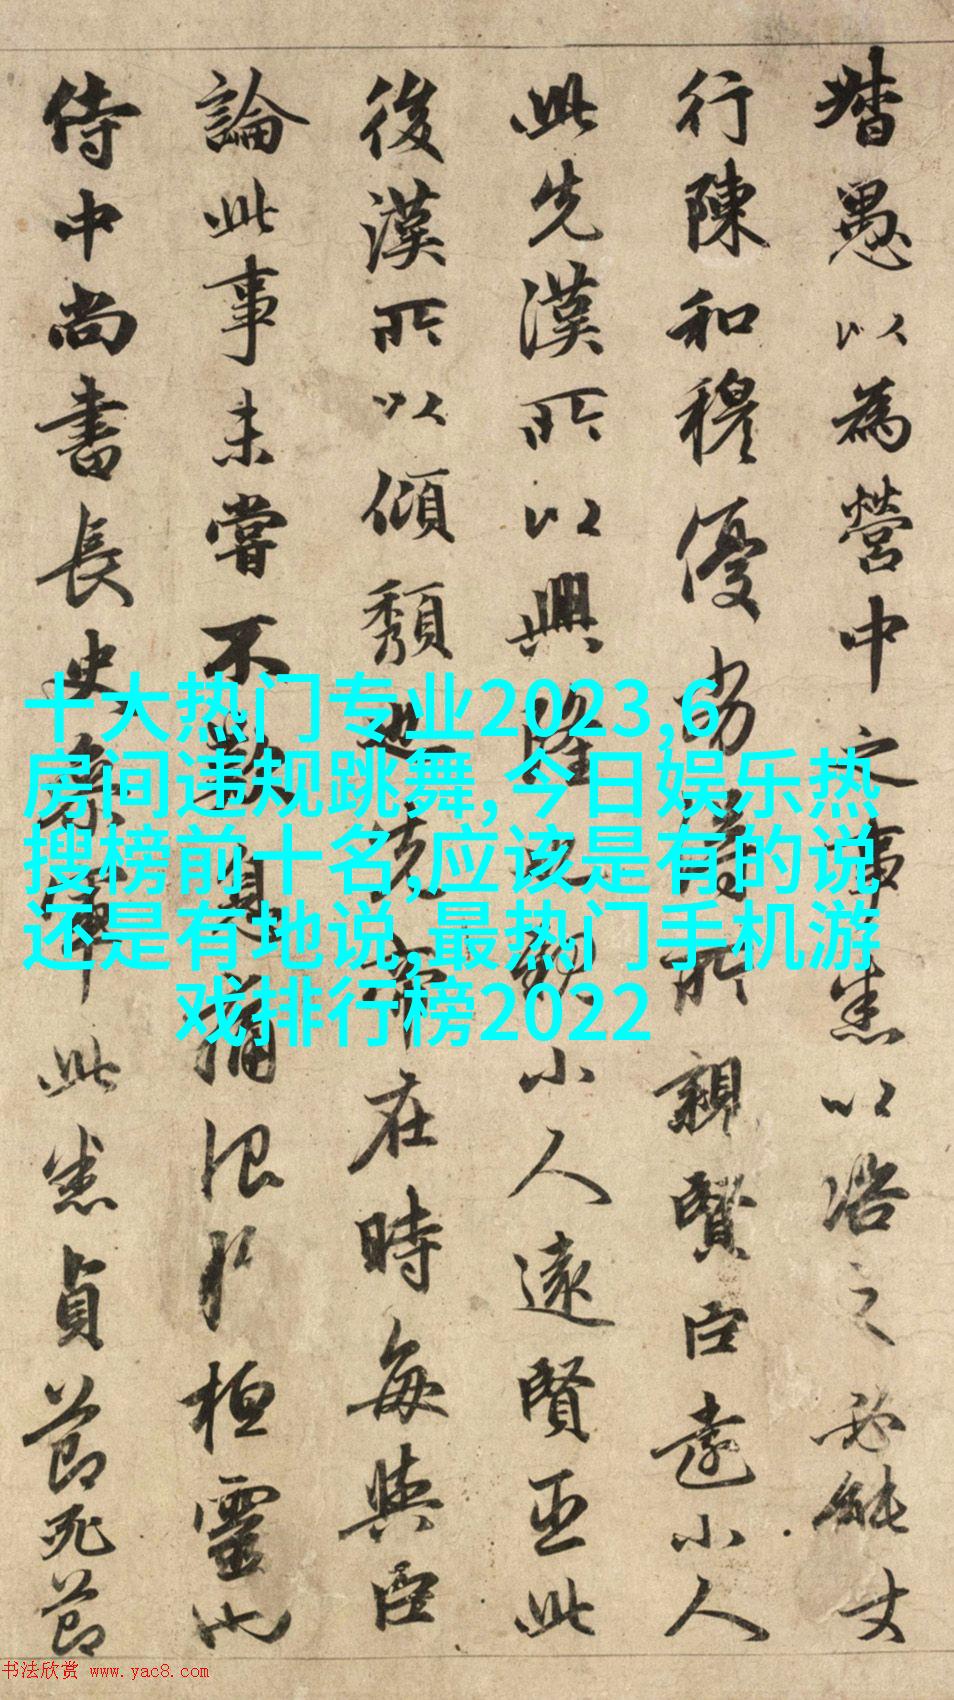 督愚以為營中之事悉以諮之必能丈
行陳和穆優劣得所親賢臣遠小人
此先漢所以興隆也親小人遠賢臣此
後漢所以傾頹也先帝在時每與臣
論此事未嘗不歎息痛恨於桓靈也
侍中尚書長史參軍此悉貞節死節
十大热门专业2023,6
房间违规跳舞,今日娱乐热
搜榜前十名,应该是有的说
还是有地说,最热门手机游
戏排行榜2022
书法欣赏 www.yac8.com